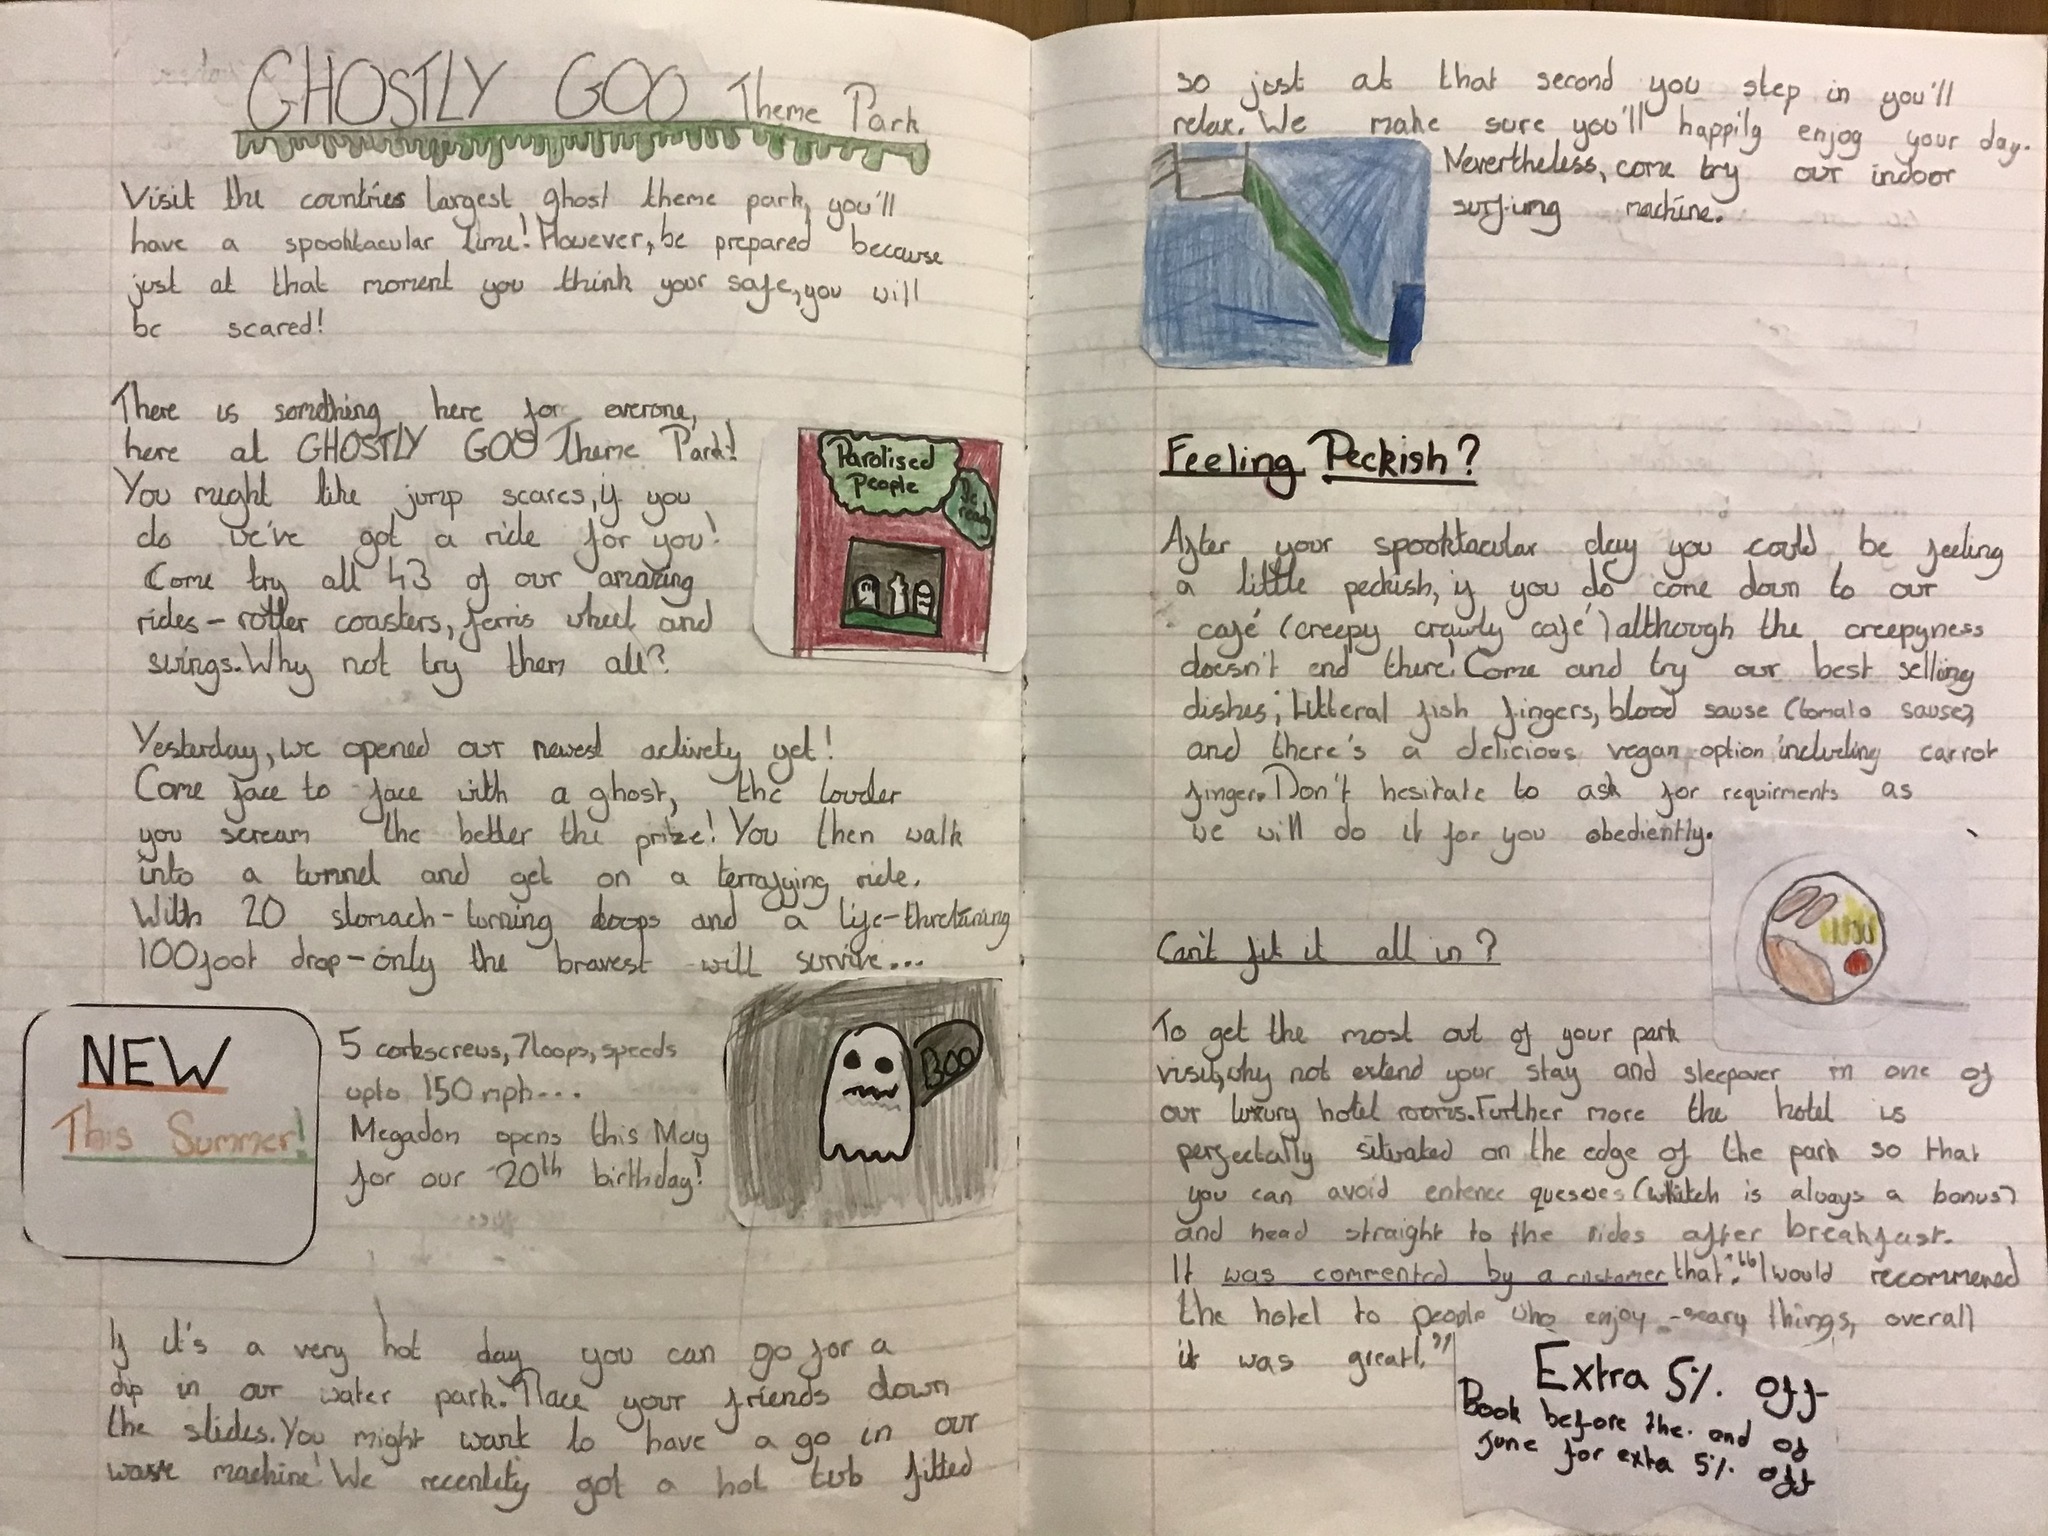 GHOSTLY GOO Theme Park
Visit the countries largest ghost theme park, you'll
have a spooktacular time! However, be prepared because
just at that moment you think your safe, you will
be scared!
There is something here for everone,
here at GHOSTLY GOO Theme Park!
You might like jump scares, if you
do we've got a ride for you!
Come try all 43 of our amazing
rides - roller coasters, ferris wheel and
swings. Why not try them all?
Parolised
People
Be
ready
Yesterday, we opened our newest activety yet!
Come face to face with a ghost, the louder
you scream the better the prize! You then walk
into a tunnel and get on a terrafying ride.
With 20 stomach-turning loops and a life-thretining
100foot drop - only the bravest will survive...
NEW
This Summer!
5 corkscrews, 7loops, speeds
upto 150 mph...
Megadon opens this May
for our 20th birthday!
BOO
If it's a very hot day you can go for a
dip in our water park. Race your friends down
the slides. You might want to have a go in our
wave machine! We recentety got a hot tub fitted
so just at that second you step in you'll
relax. We make sure you'll happily enjoy your day.
Nevertheless, come try our indoor
surfing machine.
Feeling Peckish?
After your spooktacular day you could be feeling
a little peckish, if you do come down to our
café (creepy crawly café) although the creepyness
doesn't end there! Come and try our best selling
dishes; Litteral fish fingers, blood sause (tomato sause)
and there's a delicious vegan option including carrot
finger. Don't hesitate to ask for requirments as
we will do it for you obediently.
Can't fit it all in?
To get the most out of your park
visit, why not extend your stay and sleepover in one of
our luxury hotel rooms. Further more the hotel is
perfectally situated on the edge of the park so that
you can avoid entence queses (whitch is always a bonus)
and head straight to the rides after breakfast.
It was commented by a customer that: "I would recommened
the hotel to people who enjoy scary things, overall
it was great!."
Extra 5% off
Book before the end of
June for extra 5% off